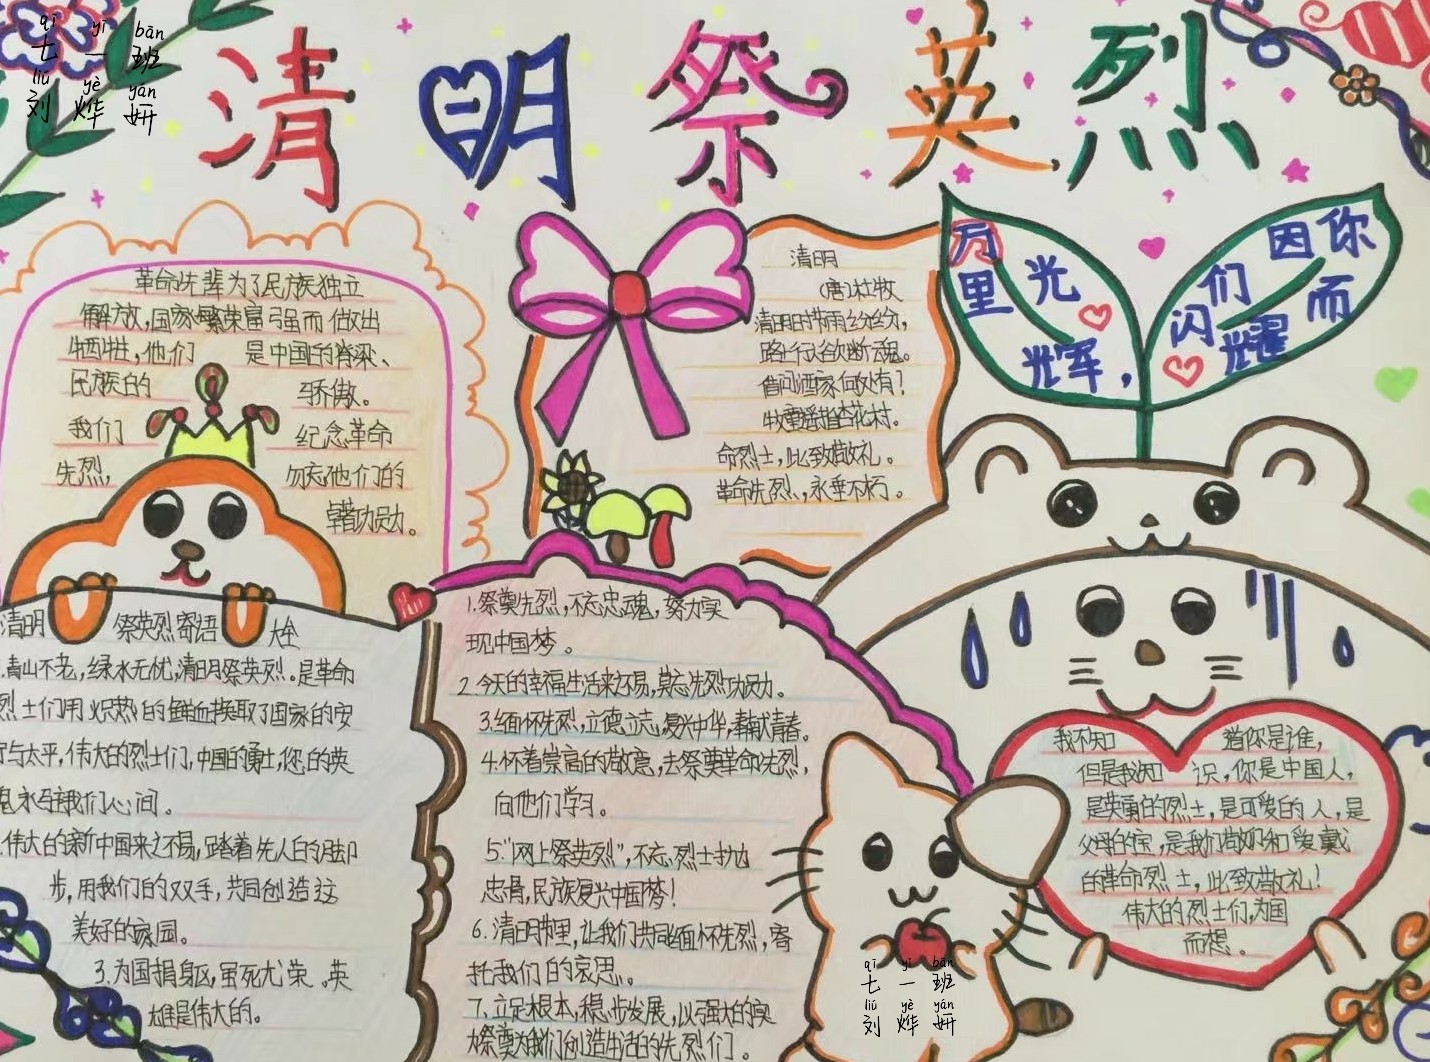 qī yī bān
七一班
liú yè yán
刘烨妍
清明祭英烈
革命先辈为了民族独立
解放,国家繁荣富强而做出
牺牲,他们 是中国的脊梁、
民族的 骄傲。
我们 纪念革命
先烈, 勿忘他们的
卓著功勋。
清明
(唐)杜牧
清明时节雨纷纷,
路上行人欲断魂。
借问酒家何处有?
牧童遥指杏花村。
命烈士,此致敬礼。
革命先烈,永垂不朽。
万里光辉,
因你们而闪耀
清明 祭英烈寄语 大全
.青山不老,绿水无忧,清明祭英烈。是革命
烈士们用炽热的鲜血换取了国家的安
宁与太平,伟大的烈士们,中国的勇士,您的英
魂永与我们心间。
.伟大的新中国来之不易,踏着先人的脚
步,用我们的双手,共同创造这
美好的家园。
3.为国捐身区,虽死尤荣。英
雄是伟大的。
1.祭奠先烈,不忘忠魂,努力实
现中国梦。
2.今天的幸福生活来之不易,莫忘先烈功勋。
3.缅怀先烈,立德立志,复兴中华,奉献青春。
4.怀着崇高的敬意,去祭奠革命先烈,
向他们学习。
5."网上祭英烈",不忘烈士
忠骨,民族复兴中国梦!
6.清明节里,让我们共同缅怀先烈,寄
托我们的哀思。
7.立足根本,稳步发展,以强大的实
力祭奠为我们创造生活的先烈们。
我不知 道你是谁,
但是我知 识,你是中国人,
是英勇的烈士,是可爱的人,是
父母的宝,是我们敬好和爱戴
的革命烈士,此致敬礼!
伟大的烈士们,为国
而想。
qī yī bān
七一班
liú yè yán
刘烨妍